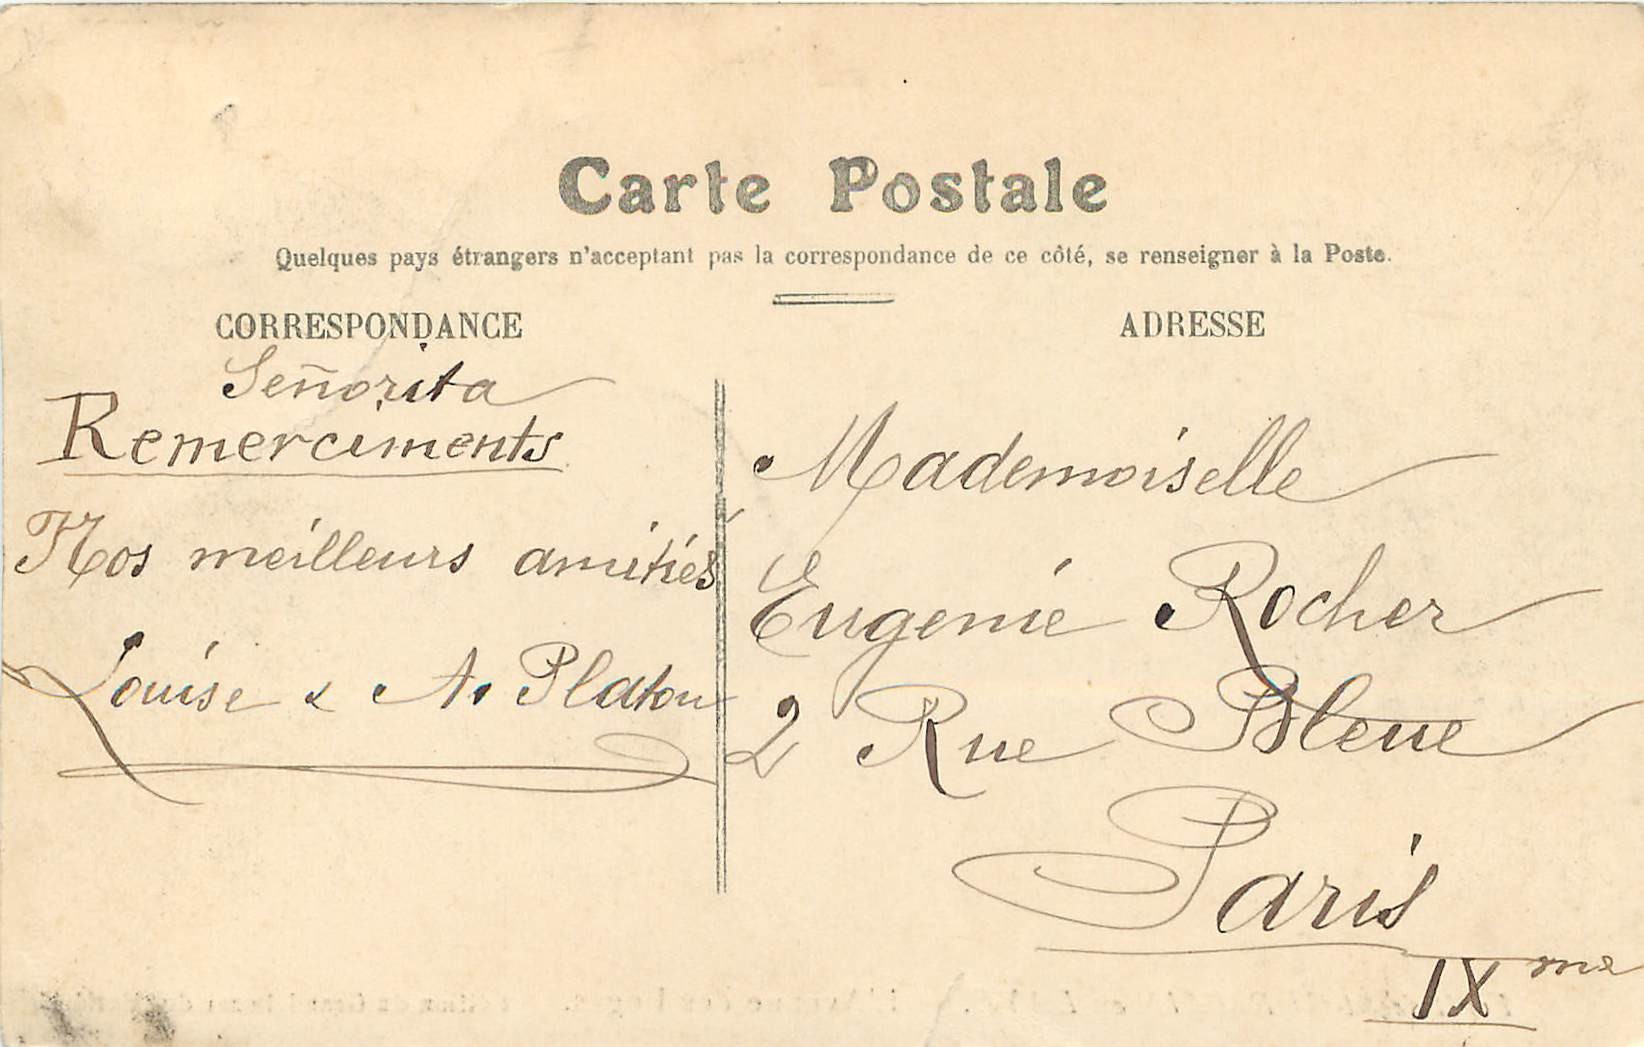 Carte Postale
Quelques pays étrangers n'acceptant pas la correspondance de ce côté, se renseigner à la Poste.
CORRESPONDANCE
Señorita
Remerciments
Nos meilleurs amitiés
Louise & A. Platon
ADRESSE
Mademoiselle
Eugenie Rocher
2 Rue Bleue
Paris
IXme